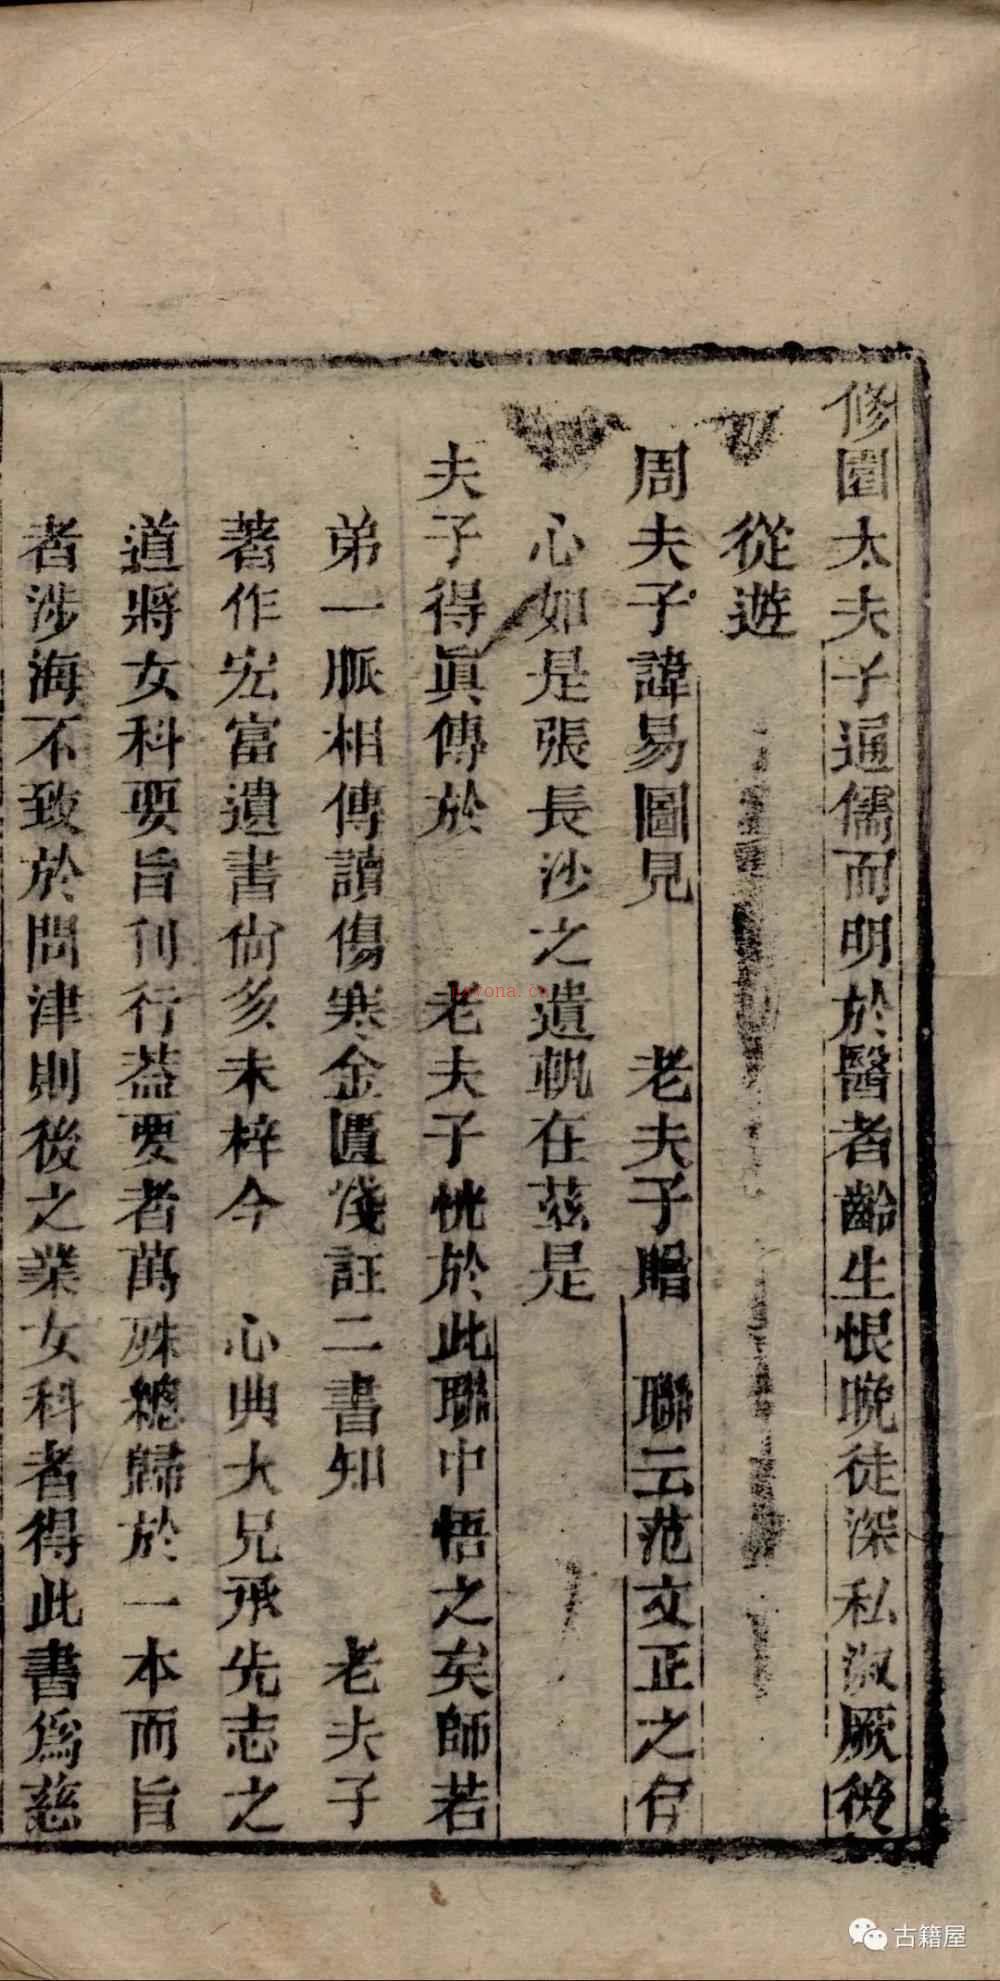 修園太夫子通儒而明於醫者齡生恨晚徒深私淑厥後
從遊
周夫子諱易圖見　老夫子贈　聯云范文正之存
心如是張長沙之遺軌在茲是
夫子得眞傳於　老夫子恍於此聯中悟之矣師若
弟一脈相傳讀傷寒金匱淺註二書知　老夫子
著作宏富遺書尙多未梓今　心典大兄承先志之
道將女科要旨刊行葢要者萬殊總歸於一本而旨
者涉海不致於問津則後之業女科者得此書爲慈
jsvona.cn
古籍屋